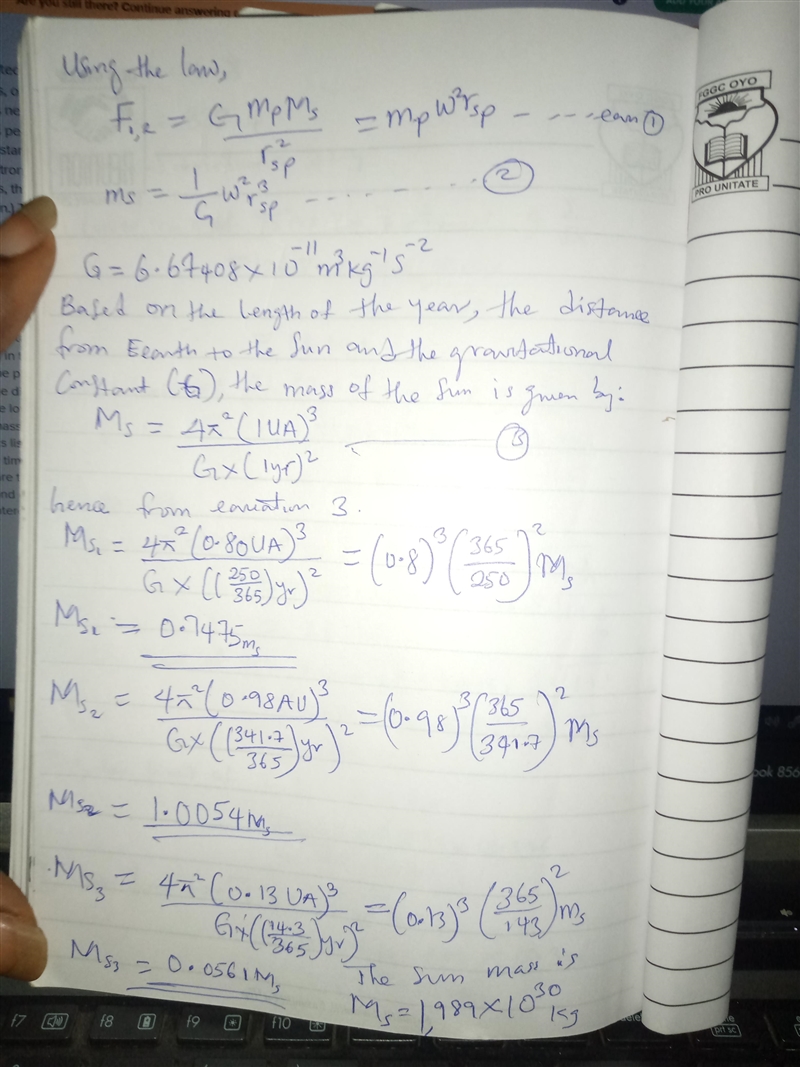 Are you still there? Continue answering
Using the law,
F₁,₂ = G mp Ms / r²sp = mp w² rsp - - - - - eqn ①
ms = 1/G w² r³sp - - - - - - - ②
G = 6.67408 × 10⁻¹¹ m³ kg⁻¹ s⁻²
Based on the length of the year, the distance
from Eearth to the Sun and the gravitational
Constant (G), the mass of the Sun is given by:
Ms = 4π² (1UA)³ / G × (1yr)² ③
hence from equation 3.
Ms₁ = 4π² (0.80UA)³ / G × ((250/365)yr)² = (0.8)³ (365/250)² Ms
Ms₁ = 0.7475ms
Ms₂ = 4π² (0.98AU)³ / G × ((341.7/365)yr)² = (0.98)³ (365/341.7)² Ms
Ms₂ = 1.0054Ms
Ms₃ = 4π² (0.13 UA)³ / G × ((14.3/365)yr)² = (0.13)³ (365/143)² ms
Ms₃ = 0.0561Ms
The Sum mass is
Ms = 1,989 × 10³⁰ Kg
FGGC OYO
PRO UNITATE
ook 856
f7
f8
f9
f10
prt sc